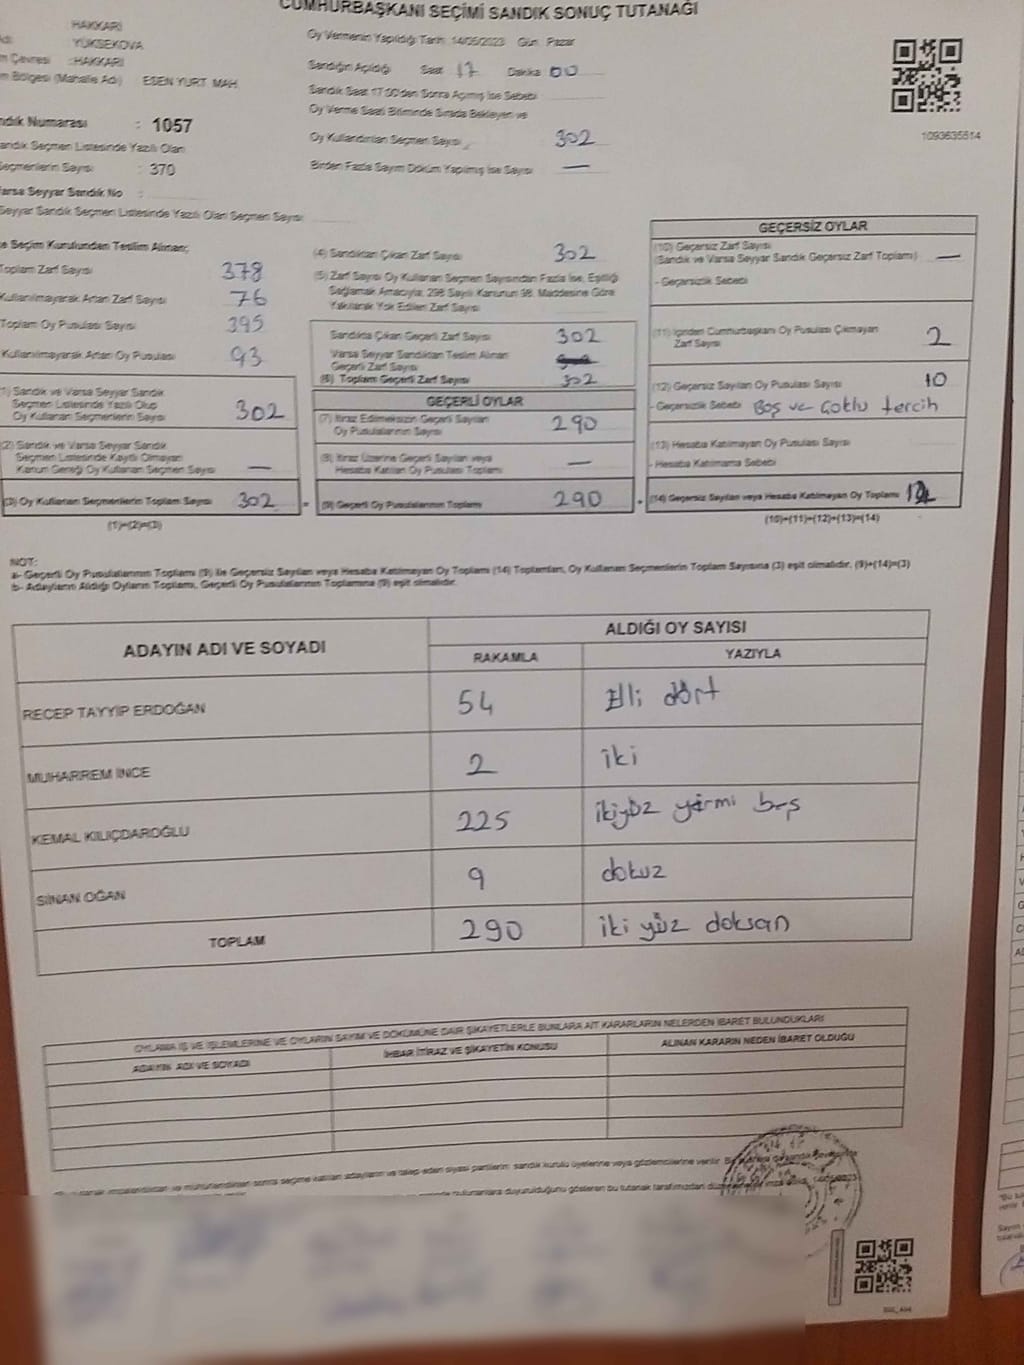 CUMHURBAŞKANI SEÇİMİ SANDIK SONUÇ TUTANAĞI
: HAKKARİ
YÜKSEKOVA
: HAKKARİ
Bölgesi (Mahalle Adı) ESEN YURT MAH.
Numarası : 1057
Sandık Seçmen Listesinde Yazılı Olan
Seçmenlerin Sayısı : 370
Varsa Seyyar Sandık No :
Seyyar Sandık Seçmen Listesinde Yazılı Olan Seçmen Sayısı
Oy Vermenin Yapıldığı Tarih: 14/05/2023 Gün: Pazar
Sandığın Açıldığı Saat 17 Dakika 00
Sandık Saat 17:00'den Sonra Açılmış İse Sebebi
Oy Verme Saati Bitiminde Sırada Bekleyen ve
Oy Kullandırılan Seçmen Sayısı 302
Birden Fazla Sayım Döküm Yapılmış İse Sayısı —
1093635514
Seçim Kurulundan Teslim Alınan;
Toplam Zarf Sayısı 378
Kullanılmayarak Artan Zarf Sayısı 76
Toplam Oy Pusulası Sayısı 395
Kullanılmayarak Artan Oy Pusulası 93
(1) Sandık ve Varsa Seyyar Sandık
Seçmen Listesinde Yazılı Olup
Oy Kullanan Seçmenlerin Sayısı 302
(2) Sandık ve Varsa Seyyar Sandık
Seçmen Listesinde Kayıtlı Olmayan
Kanun Gereği Oy Kullanan Seçmen Sayısı —
(3) Oy Kullanan Seçmenlerin Toplam Sayısı 302
(1)+(2)=(3)
(4) Sandıktan Çıkan Zarf Sayısı 302
(5) Zarf Sayısı Oy Kullanan Seçmen Sayısından Fazla İse, Eşitliği
Sağlamak Amacıyla, 298 Sayılı Kanunun 98. Maddesine Göre
Yakılarak Yok Edilen Zarf Sayısı
Sandıkta Çıkan Geçerli Zarf Sayısı 302
Varsa Seyyar Sandıktan Teslim Alınan
Geçerli Zarf Sayısı
(6) Toplam Geçerli Zarf Sayısı 302
GEÇERLİ OYLAR
(7) İtiraz Edilmeksizin Geçerli Sayılan
Oy Pusulalarının Sayısı 290
(8) İtiraz Üzerine Geçerli Sayılan veya
Hesaba Katılan Oy Pusulası Toplamı —
(9) Geçerli Oy Pusulalarının Toplamı 290
GEÇERSİZ OYLAR
(10) Geçersiz Zarf Sayısı
(Sandık ve Varsa Seyyar Sandık Geçersiz Zarf Toplamı) —
- Geçersizlik Sebebi
(11) İçinden Cumhurbaşkanı Oy Pusulası Çıkmayan
Zarf Sayısı 2
(12) Geçersiz Sayılan Oy Pusulası Sayısı 10
- Geçersizlik Sebebi Boş ve Çoklu tercih
(13) Hesaba Katılmayan Oy Pusulası Sayısı
- Hesaba Katılmama Sebebi
(14) Geçersiz Sayılan veya Hesaba Katılmayan Oy Toplamı 12
(10)+(11)+(12)+(13)=(14)
NOT:
a- Geçerli Oy Pusulalarının Toplamı (9) ile Geçersiz Sayılan veya Hesaba Katılmayan Oy Toplamı (14) Toplamları, Oy Kullanan Seçmenlerin Toplam Sayısına (3) eşit olmalıdır. (9)+(14)=(3)
b- Adayların Aldığı Oyların Toplamı, Geçerli Oy Pusulalarının Toplamına (9) eşit olmalıdır.
ADAYIN ADI VE SOYADI
ALDIĞI OY SAYISI
RAKAMLA YAZIYLA
RECEP TAYYİP ERDOĞAN 54 Elli dört
MUHARREM İNCE 2 iki
KEMAL KILIÇDAROĞLU 225 ikiyüz yirmi beş
SİNAN OĞAN 9 dokuz
TOPLAM 290 iki yüz doksan
OYLAMA İŞ VE İŞLEMLERİNE VE OYLARIN SAYIM VE DÖKÜMÜNE DAİR ŞİKAYETLERLE BUNLARA AİT KARARLARIN NELERDEN İBARET BULUNDUKLARI
ADAYIN ADI VE SOYADI İHBAR İTİRAZ VE ŞİKAYETİN KONUSU ALINAN KARARIN NEDEN İBARET OLDUĞU